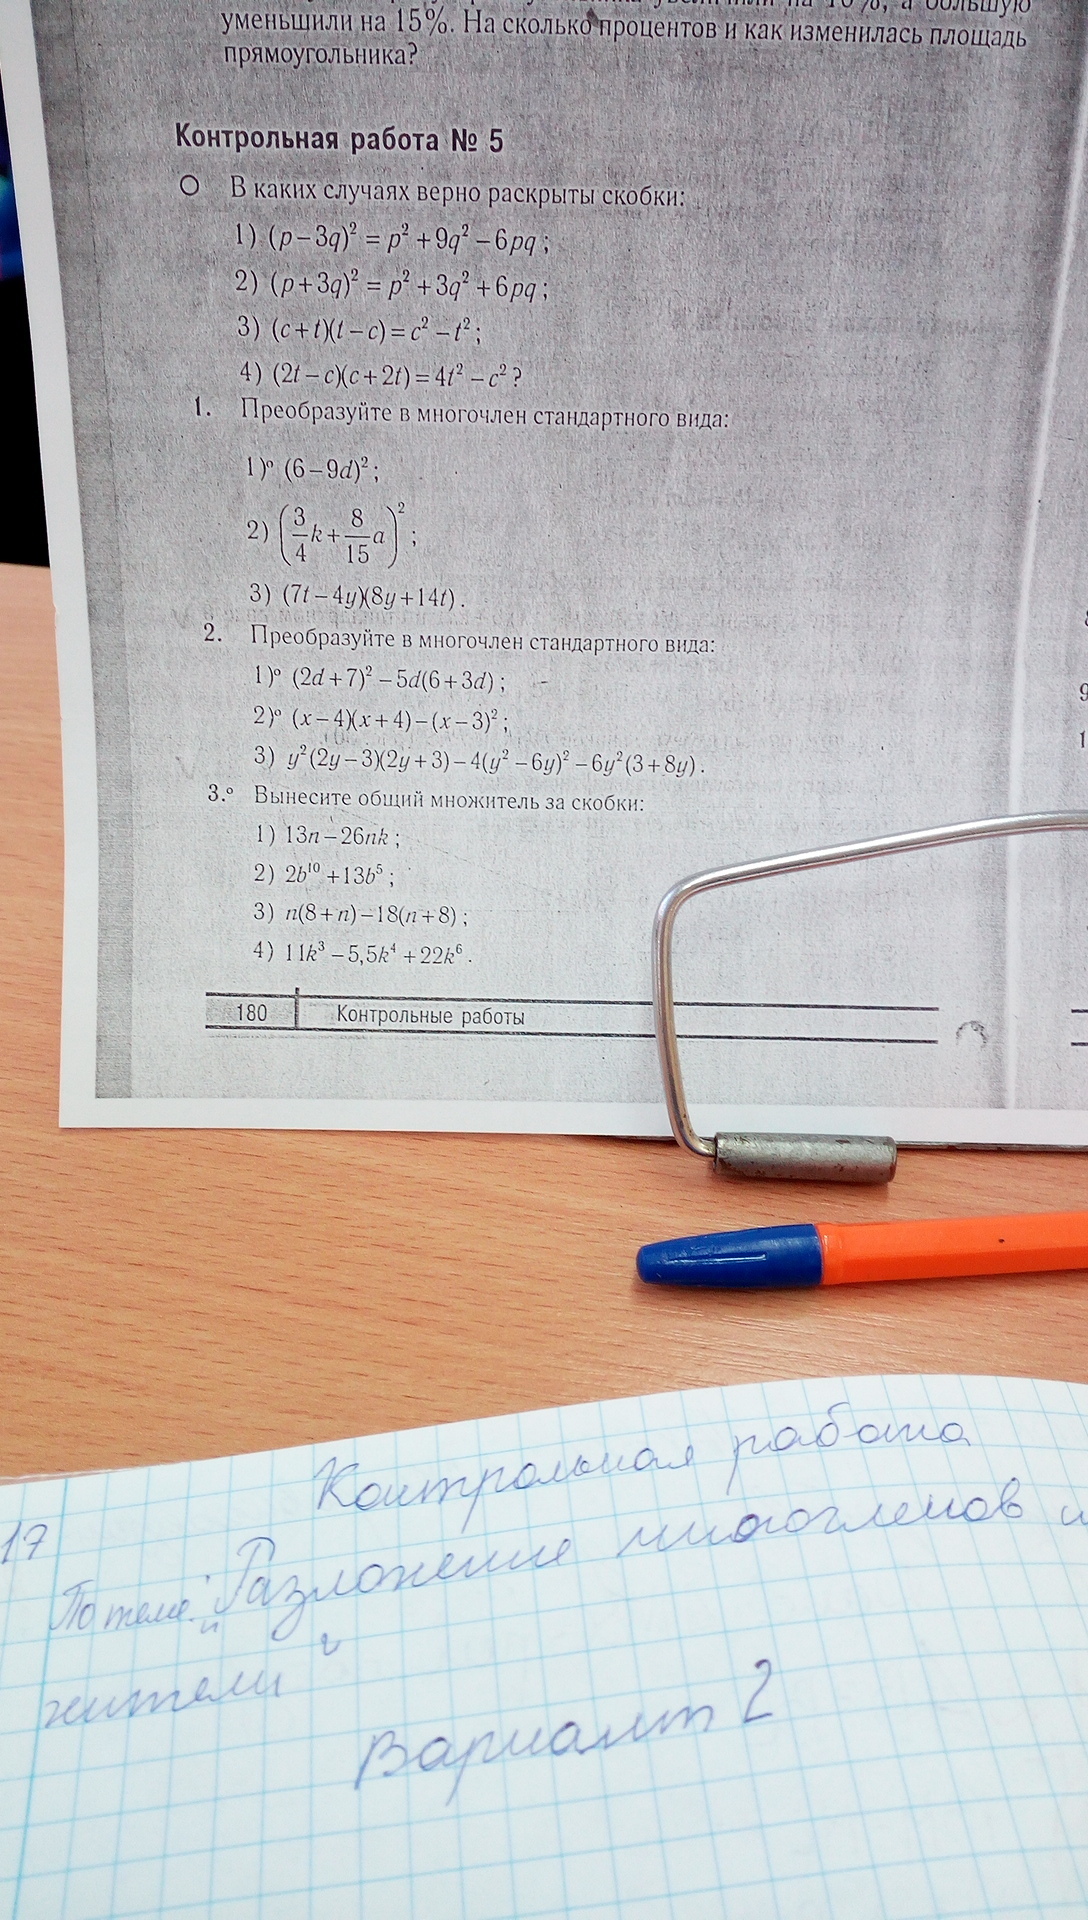 уменьшили на 15%. На сколько процентов и как изменилась площадь
прямоугольника?
Контрольная работа № 5
О В каких случаях верно раскрыты скобки:
1) (p−3q)² = p² + 9q² − 6pq;
2) (p+3q)² = p² + 3q² + 6pq;
3) (c+t)(t−c) = c² − t²;
4) (2t−c)(c+2t) = 4t² − c²?
1. Преобразуйте в многочлен стандартного вида:
1)º (6−9d)²;
2) (3/4 k + 8/15 a)²;
3) (7t−4y)(8y+14t).
2. Преобразуйте в многочлен стандартного вида:
1)º (2d+7)² − 5d(6+3d);
2)º (x−4)(x+4) − (x−3)²;
3) y²(2y−3)(2y+3) − 4(y² − 6y)² − 6y²(3+8y).
3.º Вынесите общий множитель за скобки:
1) 13n − 26nk;
2) 2b¹⁰ + 13b⁵;
3) n(8+n) − 18(n+8);
4) 11k³ − 5,5k⁴ + 22k⁶.
180 Контрольные работы
Контрольная работа
17
По теме: „Разложение многочленов
жители"
Вариант 2